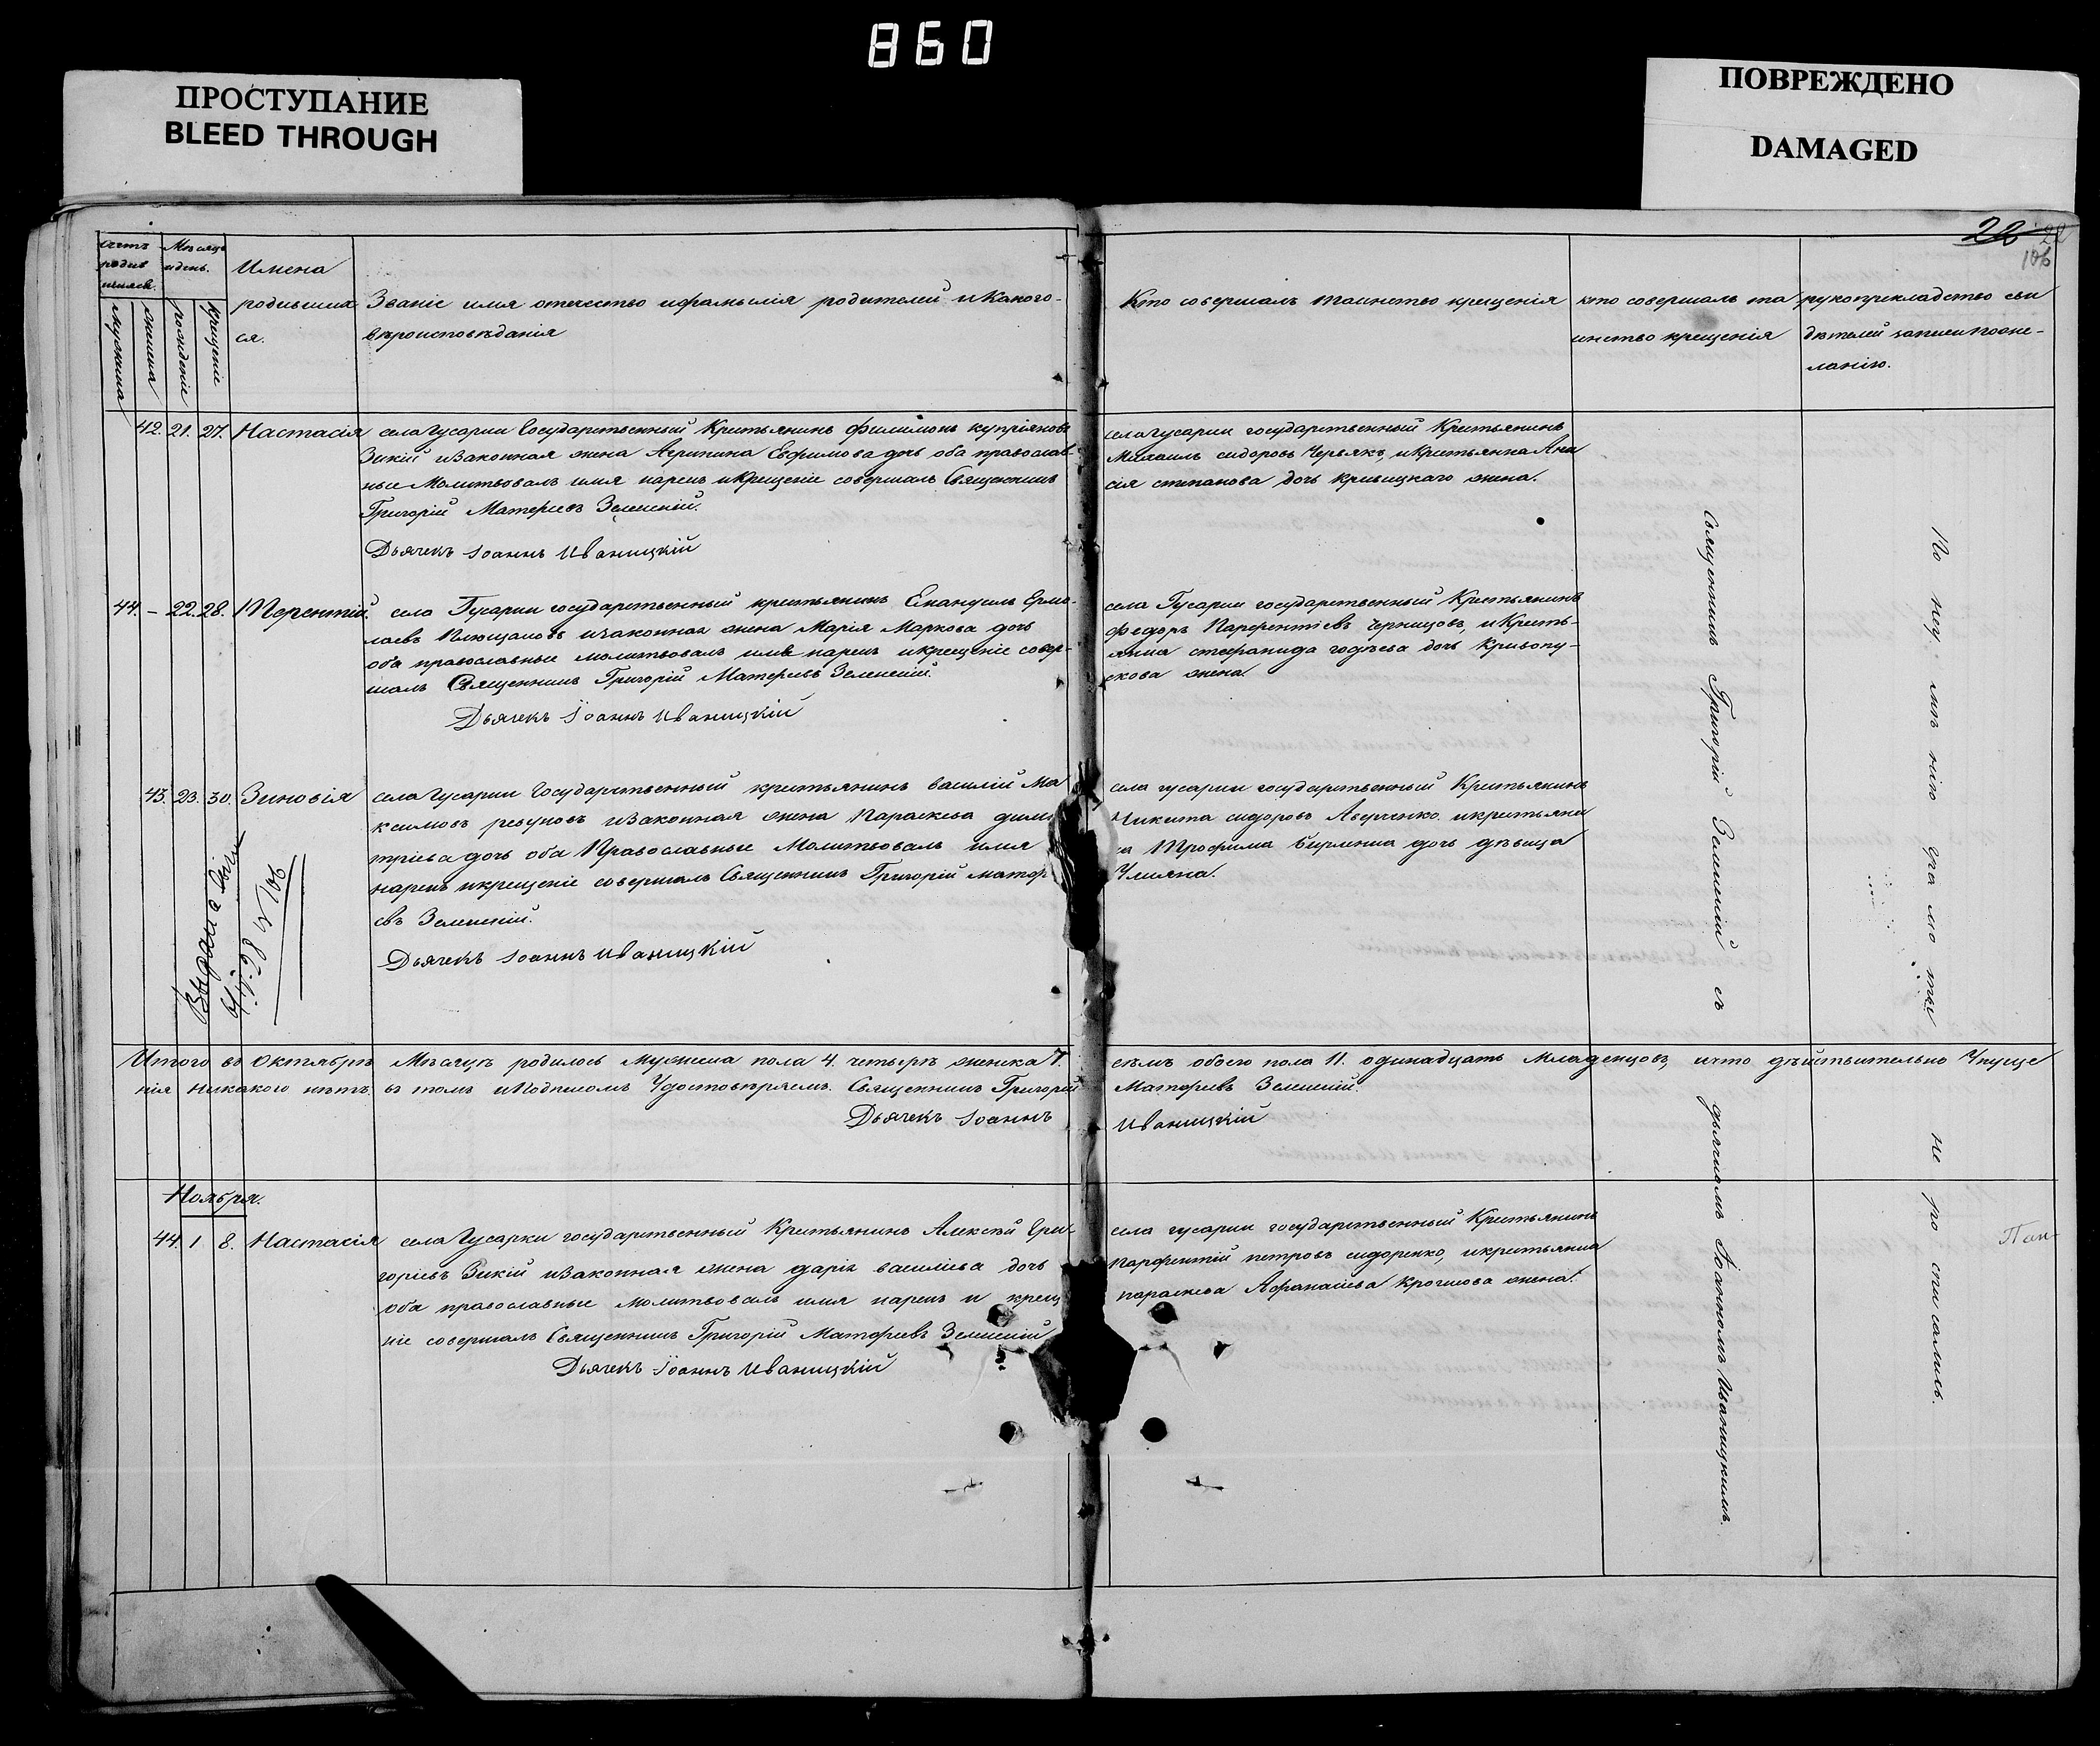 860
ПРОСТУПАНИЕ
BLEED THROUGH
ПОВРЕЖДЕНО
DAMAGED
106
Счетъ родив шихся.
Мѣсяцъ и день.
мужеска
женска
рожденіе
крещеніе
Имена
родивших
ся.
Званіе имя отечество и фамилія родителей и какого-
вѣроисповѣданія
Кто совершалъ таинство крещенія
кто совершалъ та
инство крещенія
рукоприкладство сви
дѣтелей записи по же-
ланію.
42. 21. 27. Настасія
села Гусарки Государственный Крестьянинъ Филимонъ Купріяновъ
Зикій и законная жена Агрипина Евфимова дочь оба православ-
ные Молитвовалъ имя нарекъ и крещеніе совершалъ Священникъ
Григорій Матфеевъ Зеленскій.
Дьячекъ Іоаннъ Иваницкій
села Гусарки государственный Крестьянинъ
Михаилъ сидоровъ Червякъ, и крестьянка Ана
сія степанова дочь Кривицкаго жена.
44. – 22. 28. Терентій.
села Гусарки государственный крестьянинъ Емануилъ Ермо-
лаевъ и законная жена Марія Маркова дочь
оба православные молитвовалъ имя нарекъ и крещеніе совер-
шалъ Священникъ Григорій Матфеевъ Зеленскій.
Дьячекъ Іоаннъ Иваницкій
села Гусарки государственный Крестьянинъ
Федоръ Парфентіевъ Черницовъ, и Кресть-
янка стефанида дочь Кривопу-
скова жена.
43. 23. 30. Зиновія
села Гусарки Государственный крестьянинъ василій Ма
ксимовъ резуновъ и законная жена Параскева дими
тріева дочь оба Православные Молитвовалъ имя
нарекъ и крещеніе совершалъ Священникъ Григорій матфе
евъ Зеленскій.
Дьячекъ Іоаннъ Иваницкій
села гусарки государственный Крестьянинъ
Никита сидоровъ Аверченко и крестьяни
на Трофима дочь дѣвица
Улияна.
N 106
Итого въ Октябрѣ Мѣсяцѣ родилось Мужеска пола 4. четыре женска 7. семъ обоего пола 11. одинадцать Младенцовъ, и что дѣйствительно Упуще
нія никакого нѣтъ въ томъ и Подписомъ Удостовѣряемъ. Священникъ Григорій Матфеевъ Зеленскій.
Дьячекъ Іоаннъ Иваницкій
Ноября.
44. 1 8. Настасія
села Гусарки государственный Крестьянинъ Алексѣй Гри-
горіевъ Зикій и законная жена дарія василіева дочь
оба православные молитвовалъ имя нарекъ и крещ
ніе совершалъ Священникъ Григорій Матфеевъ Зеленскій
Дьячекъ Іоаннъ Иваницкій
села гусарки государственный Крестьянинъ
парфентій петровъ сидоренко, и крестьянка
параскева Афанасіева жена.
Священникъ Григорій Зеленскій съ дьячкомъ Іоанномъ Иваницкимъ.
По неумѣнію грамоты не росписались.